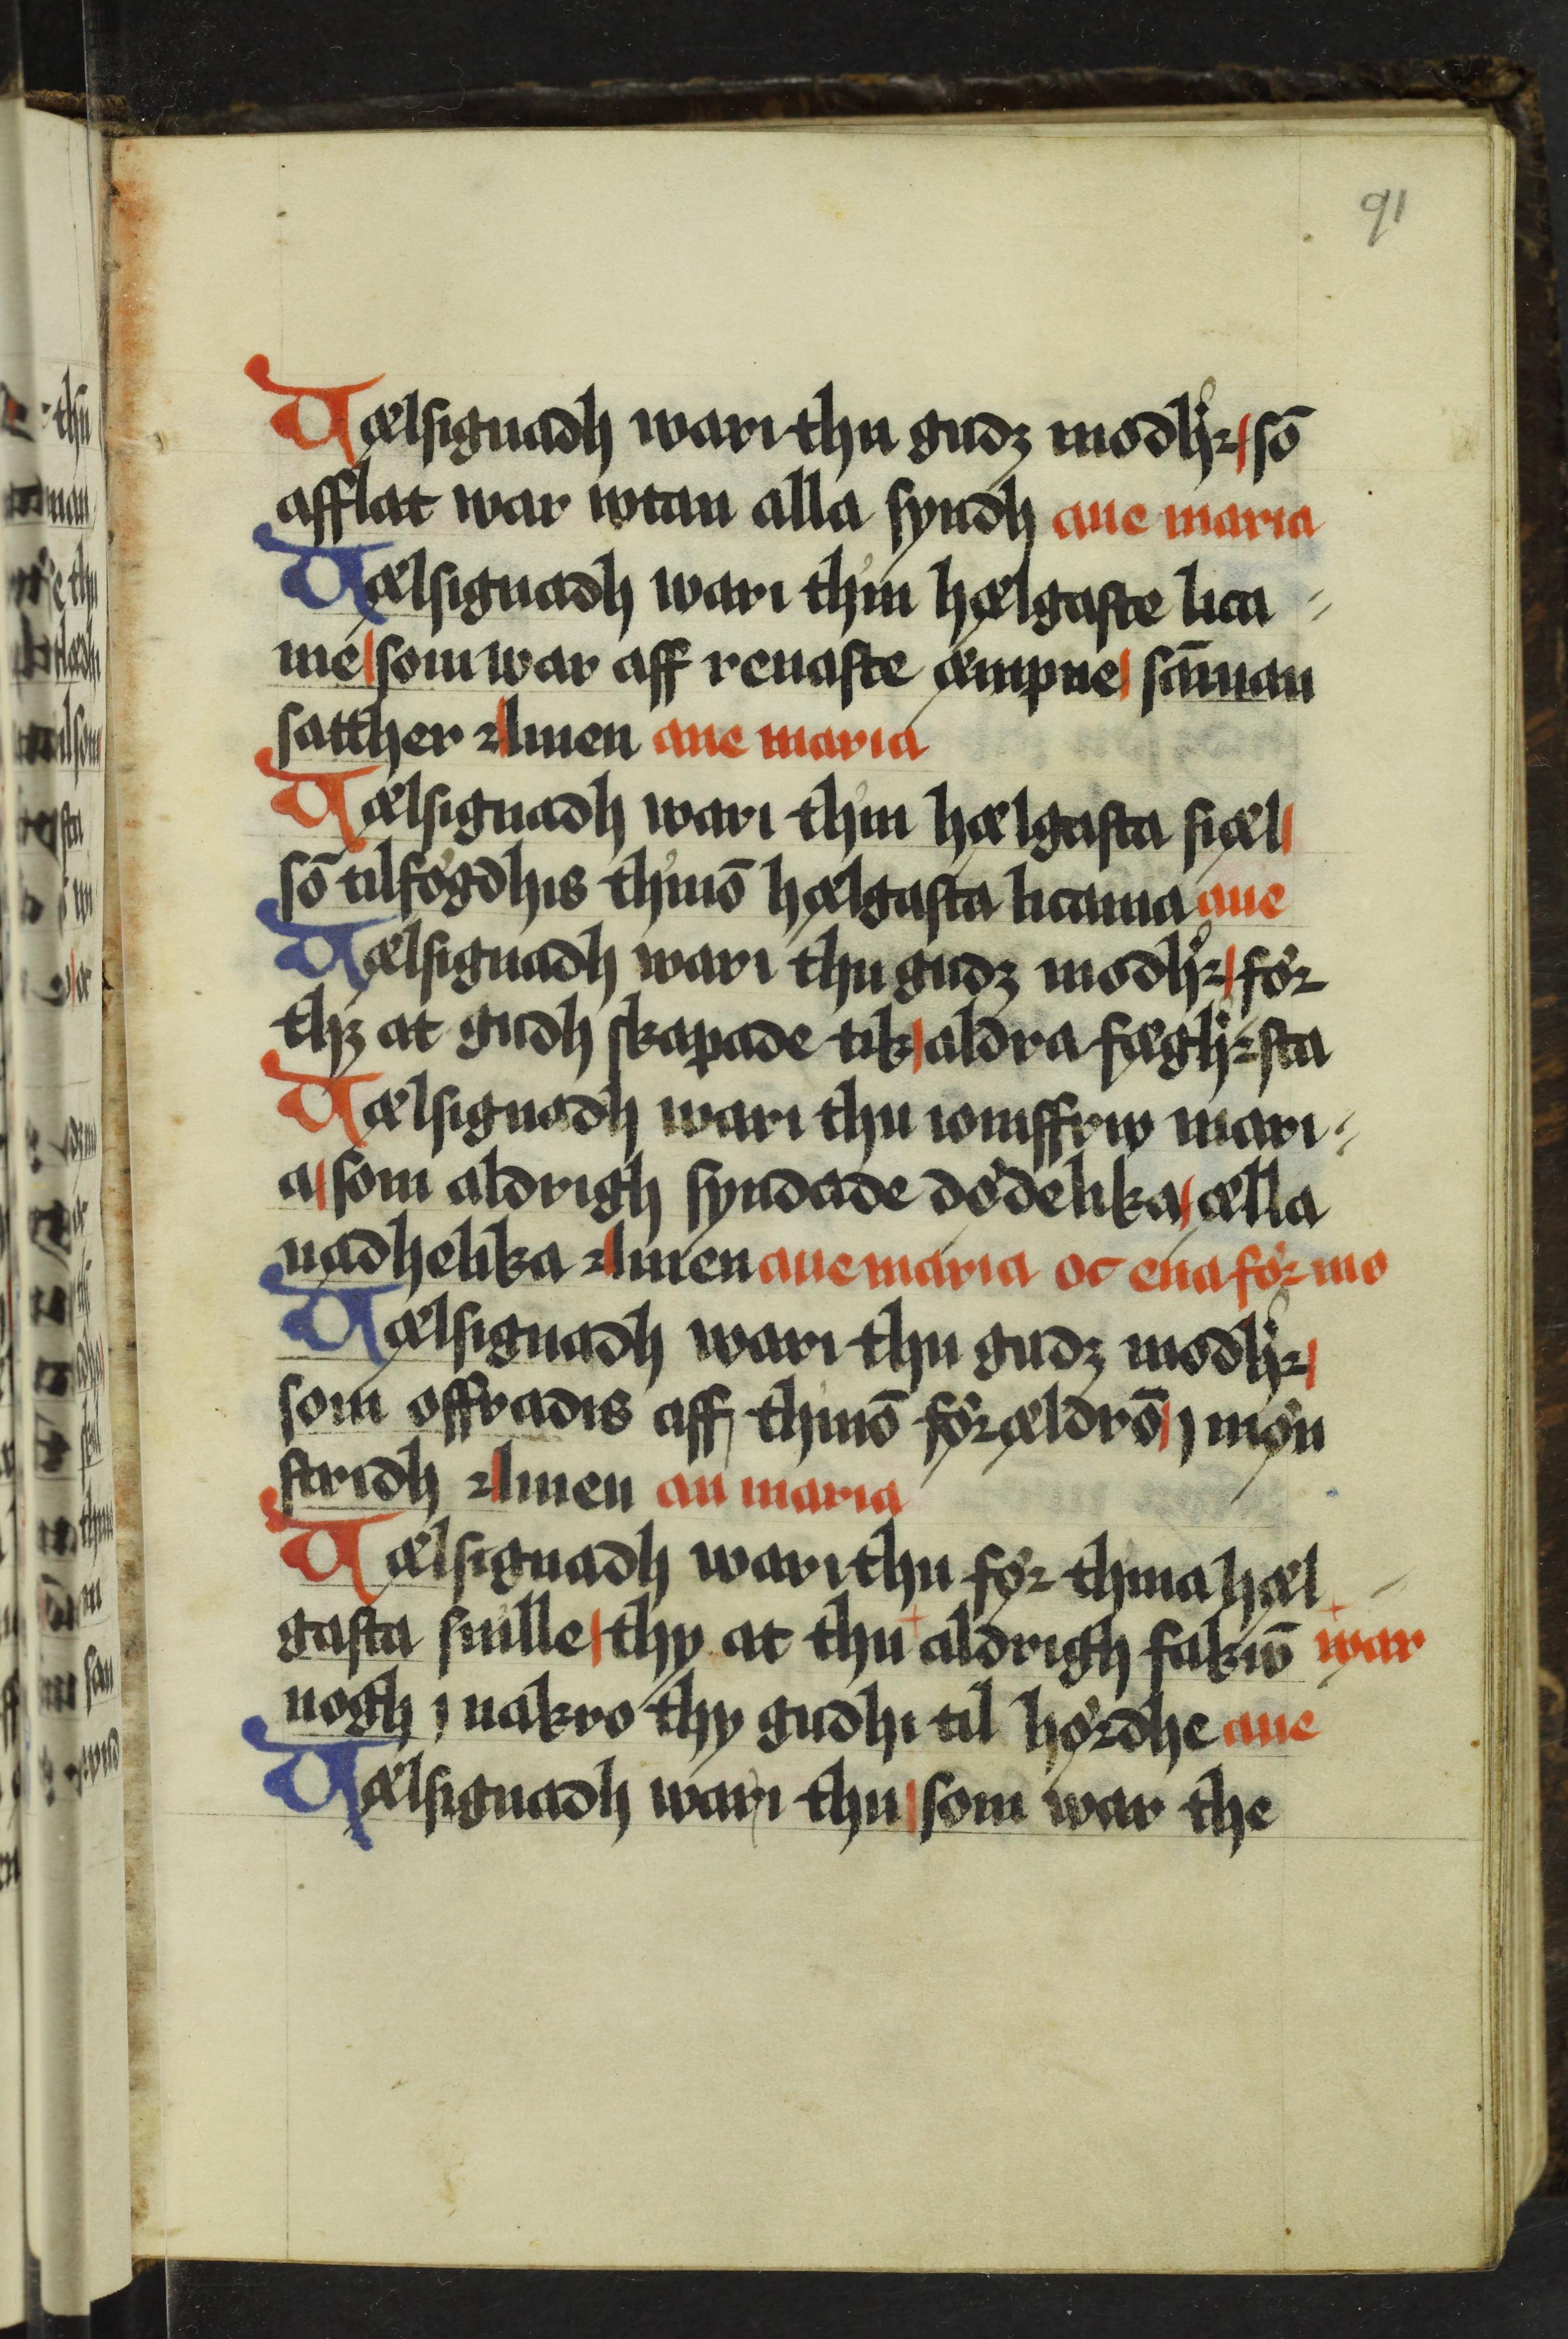 91
Uælsignadh wari thu gudz modhˀꝛ som̄
afflat war wtan alla syndh aue maria
Uælsignadh wari thin hælgaste lica ⸗
me som war aff renaste æmpne sām̄an
satther Amen aue maria
Uælsignadh wari thin hælgasta siæl
sō tilføgdhis thinō hælgasta licama aue
Uælsignadh wari thu gudz modhˀꝛ føꝛ
thꝫ at gudh skapade tik aldra fæghˀꝛsta
Uælsignadh wari thu iomffrw mari ⸗
a som aldrigh syndade dødelika ælla
nadhelika Amen aue maria oc ena føꝛ mo
Uælsignadh wari thu gudz modhˀꝛ
som offradis aff thinō føꝛældrō j møn
stridh Amen au maria
Uælsignadh wari thu føꝛ thina hæl
gasta snille thy at thu + aldrigh fakwn̄ + war
nogh j nakro thy gudhi til høꝛdhe aue
Uælsignadh wari thu som war the